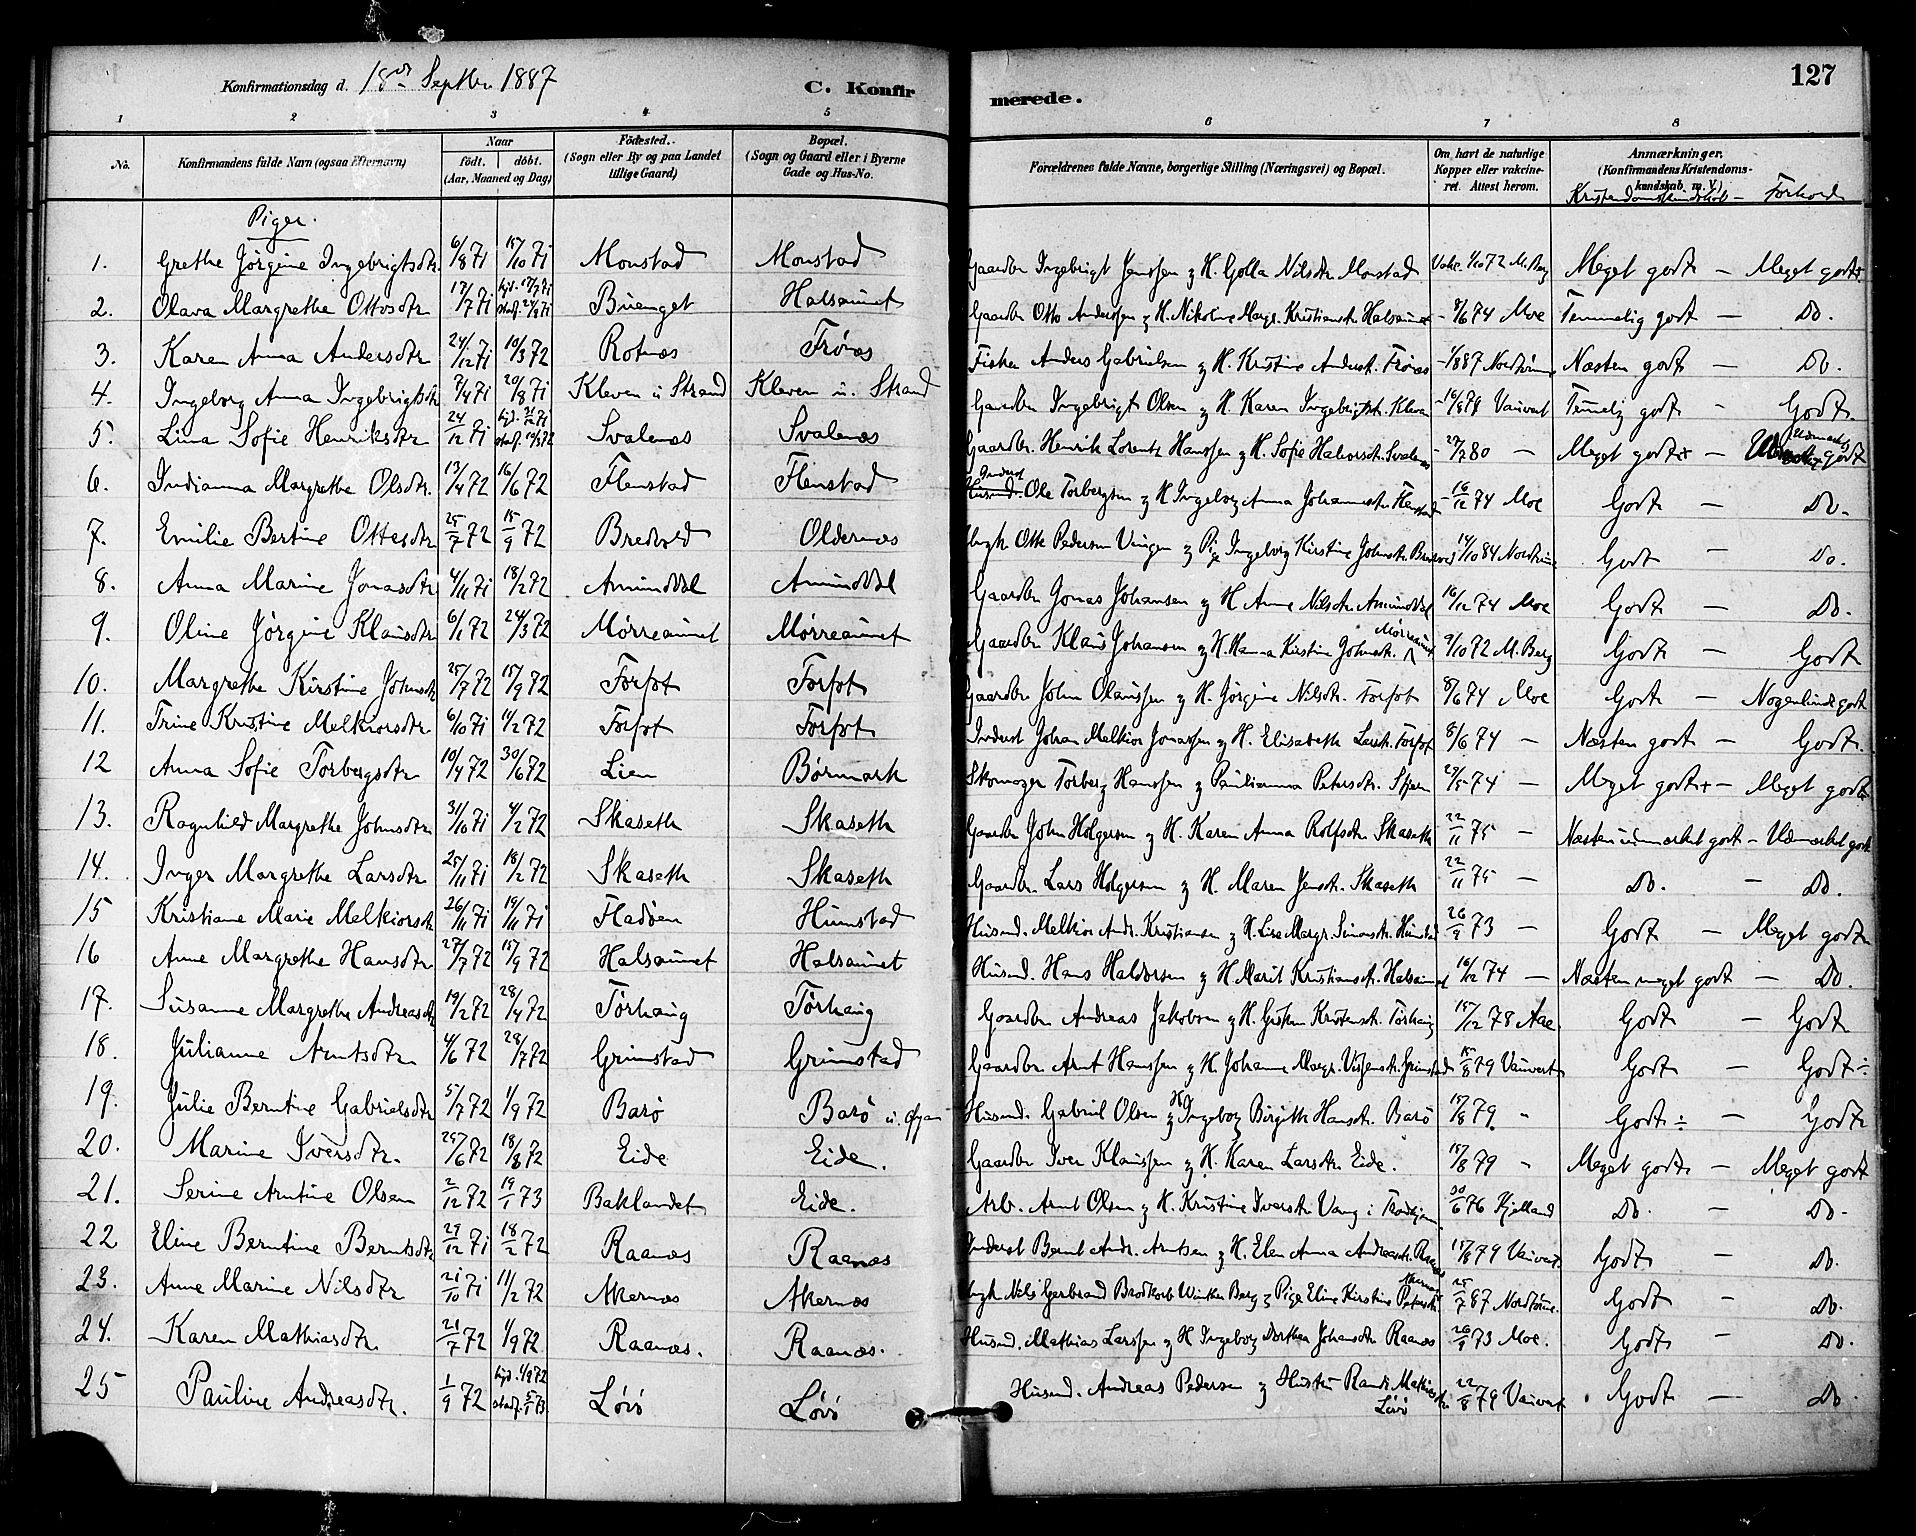 127
Konfirmationsdag d. 18de Septbr 1887 C. Konfirmerede.
1 2 3 4 5 6 7 8
No. Konfirmandens fulde Navn (ogsaa Efternavn) Naar födt. döbt. (Aar, Maaned og Dag) Födested. (Sogn eller By og paa Landet tillige Gaard) Bopæl. (Sogn og Gaard eller i Byerne Gade og Hus-No. Forældrenes fulde Navne, borgerlige Stilling (Næringsvei) og Bopæl. Om havt de naturlige Kopper eller vakcineret. Attest herom. Anmærkninger. (Konfirmandens Kristendomskundskab m. V.)
Kristendomskundskab – Forhold
Piger.
1. Grethe Jörgine Ingebrigtsdtr. 6/8 71 15/10 71 Monstad Monstad Gaardbr Ingebrigt Jenssen og H. Golla Nilsdtr. Monstad Vakc. 1/10 72 M. Berg Meget godt – Meget godt
2. Olava Margrethe Ottosdtr 17/7 71 hjd. 17/7 71 stadf. 24/9 71 Buenget Halsaunet Gaardbr Otto Anderssen og H. Nikoline Margr. Kristiansdtr. Halsaunet – 8/6 74 Moe Temmelig godt – Do.
3. Karen Anna Andersdtr 24/12 71 10/3 72 Rotnæs Frönæs Fisker Anders Gabrielsen og H. Kristine Andersdt. Frönæs – 1/8 87 Næsten godt – Do.
4. Ingeborg Anna Ingebrigtsdtr 7/4 71 20/8 71 Kleven u. Strand Kleven u. Strand Gaardbr Ingebrigt Olsen og H. Karen Ingebrigtsdt. Kleven – 16/8 79 Vauvert Temmelig godt – Godt
5. Lina Sofie Henriksdtr 24/12 71 Svalenæs Svalenæs Gaardbr. Henrik Lorentz Hanssen og H. Sofie Halvorsdt. Svalenæs – 27/7 80 – Meget godt – Udmærket godt
6. Indianna Margrethe Olsdtr. 13/4 72 16/6 72 Flenstad Flenstad Inderst Ole Torbergsen og H Ingeborg Anna Johannesdt. Flenstad – 16/12 74 Moe Godt – Do.
7. Emilie Bertine Ottesdtr 25/7 72 15/9 72 Bredvold Oldernæs Ungk Otte Pedersen Vingen og Pige Ingeborg Kirstine Johnsdt. 14/10 84 Godt – Do.
8. Anna Marine Jonasdtr 4/11 71 18/2 72 Amundsdal Amundsdal Gaardbr Jonas Johansen og H Anne Nilsdtr. Amundsdal 16/12 74 Moe Godt – Do.
9. Oline Jörgine Klausdtr 6/1 72 24/3 72 Mørreaunet Mørreaunet Gaardbr Klaus Johansen og H. Hanna Kirstine Johnsdt. Mørreaunet 9/10 72 M. Berg Godt – Godt
10. Margrethe Kirstine Johnsdtr 25/7 72 15/9 72 Forfot Forfot Gaardbr John Olaussen og H. Jörgine Nilsdt. Forfot 8/6 74 Moe Godt – Nogenlunde godt
11. Trine Kristine Melkiorsdtr 6/10 71 11/2 72 Forfot Forfot Inderst Johan Melkior Jonassen og H. Elisabeth Larsdt. Forfot 8/6 74 – Næsten godt – Godt.
12 Anna Sofie Torbergsdtr 10/4 72 30/6 72 Lien Börmark Skomager Torberg Hanssen og Paulianna Petersdtr. 29/5 74 – Meget godt – Meget godt
13. Ragnhild Margrethe Johnsdtr 31/10 71 4/2 72 Skaseth Skaseth Gaardbr John Holgersen og H. Karen Anna Rolfsdtr. Skaseth 22/11 75 – Næsten udmærket godt – Udmærket godt
14. Inger Margrethe Larsdtr 25/11 71 18/2 72 Skaseth Skaseth Gaardbr. Lars Holgersen og H. Maren Jensdt. Skaseth 22/11 75 – Do. – Do.
15 Kristiane Marie Melkiorsdtr 26/11 71 19/11 71 Fladöen Humstad Husmd. Melkior Andr. Kristiansen og H. Lise Margr. Simonsdt. Humstad 26/9 73 – Godt – Meget godt
16 Anne Margrethe Hansdtr 27/7 72 15/9 72 Halsaunet Halsaunet Husmd. Hans Haldorsen og H. Marit Kristiansdt. Halsaunet 16/12 74 – Næsten meget godt – Do.
17. Susanne Margrethe Andreasdtr 19/2 72 28/4 72 Törhaug Törhaug Gaardbr Andreas Jakobsen og H. Kristensdt. Törhaug 15/12 78 Aae. Godt – Godt
18. Julianne Arntsdtr. 4/6 72 28/7 72 Grimstad Grimstad Gaardbr Arnt Hanssen og H. Johanne Margr. Grimstad 15/8 79 Vauvert Godt – Godt ÷
19. Julie Berntine Gabrielsdtr 5/7 72 1/9 72 Barö Barö u. Öyan Husmd. Gabriel Olsen og H. Ingeborg Birgitte Hansdt. Barö 15/8 79. " Godt ÷ – Godt
20. Marine Iversdtr. 25/6 72 18/8 72 Eide Eide. Gaardbr Iver Klaussen og H. Karen Larsdtr. Eide. 15/8 79 " Meget godt – Meget godt
21. Serine Arntine Olsen 2/12 72 19/1 73 Baklandet Eide. Arb. Arnt Olsen og H. Kristine Iversdt. Vang i Trondhjem 30/6 76 Kjelland Do. – Do.
22 Eline Berntine Berntsdtr 29/12 71 18/2 72 Raanæs Raanæs Inderst Bernt Andr. Arntsen og H. Elen Anna Andreasdt. Raanæs 15/8 79 Vauvert. Godt – Do.
23. Anne Marine Nilsdtr 21/10 71 11/2 72 Akernæs Akernæs Ungk Nils Gerbrand Brodkorb Winther Berg og Pige Eline Kirstine Petersdt. Akernæs 25/7 87 Godt – Do.
24. Karen Mathiasdtr. 21/7 72 1/9 72 Raanæs. Raanæs. Husmd. Mathias Larssen og H Ingeborg Dorthea Johansdt. Raanæs 26/9 73 Moe. Godt – Do.
25 Pauline Andreasdtr. 1/9 72 hjd. 1/9 72 stadf. 5/1 73 Lövö Lövö Husmd. Andreas Pedersen og Hustru Randi Mathiasdtr. Lövö 22/8 79 Vauvert Godt – Do